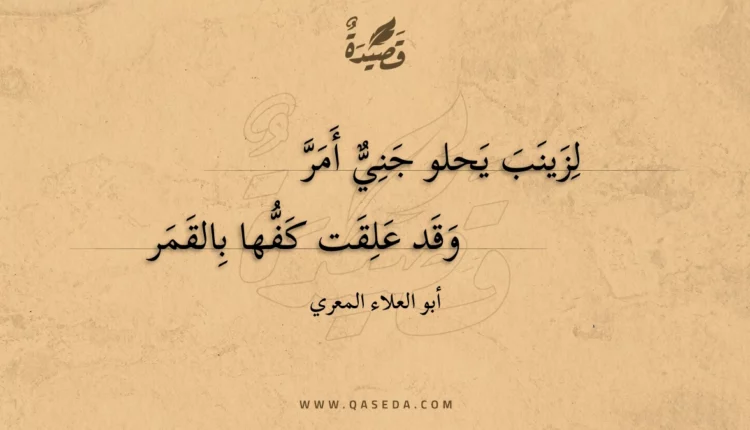 قَصِيْدَةٌ
لِزَينَبَ يَحلو جَنِيٌّ أَمَرَّ
وَقَد عَلِقَت كَفُّها بِالقَمَر
أبو العلاء المعري
WWW.QASEDA.COM